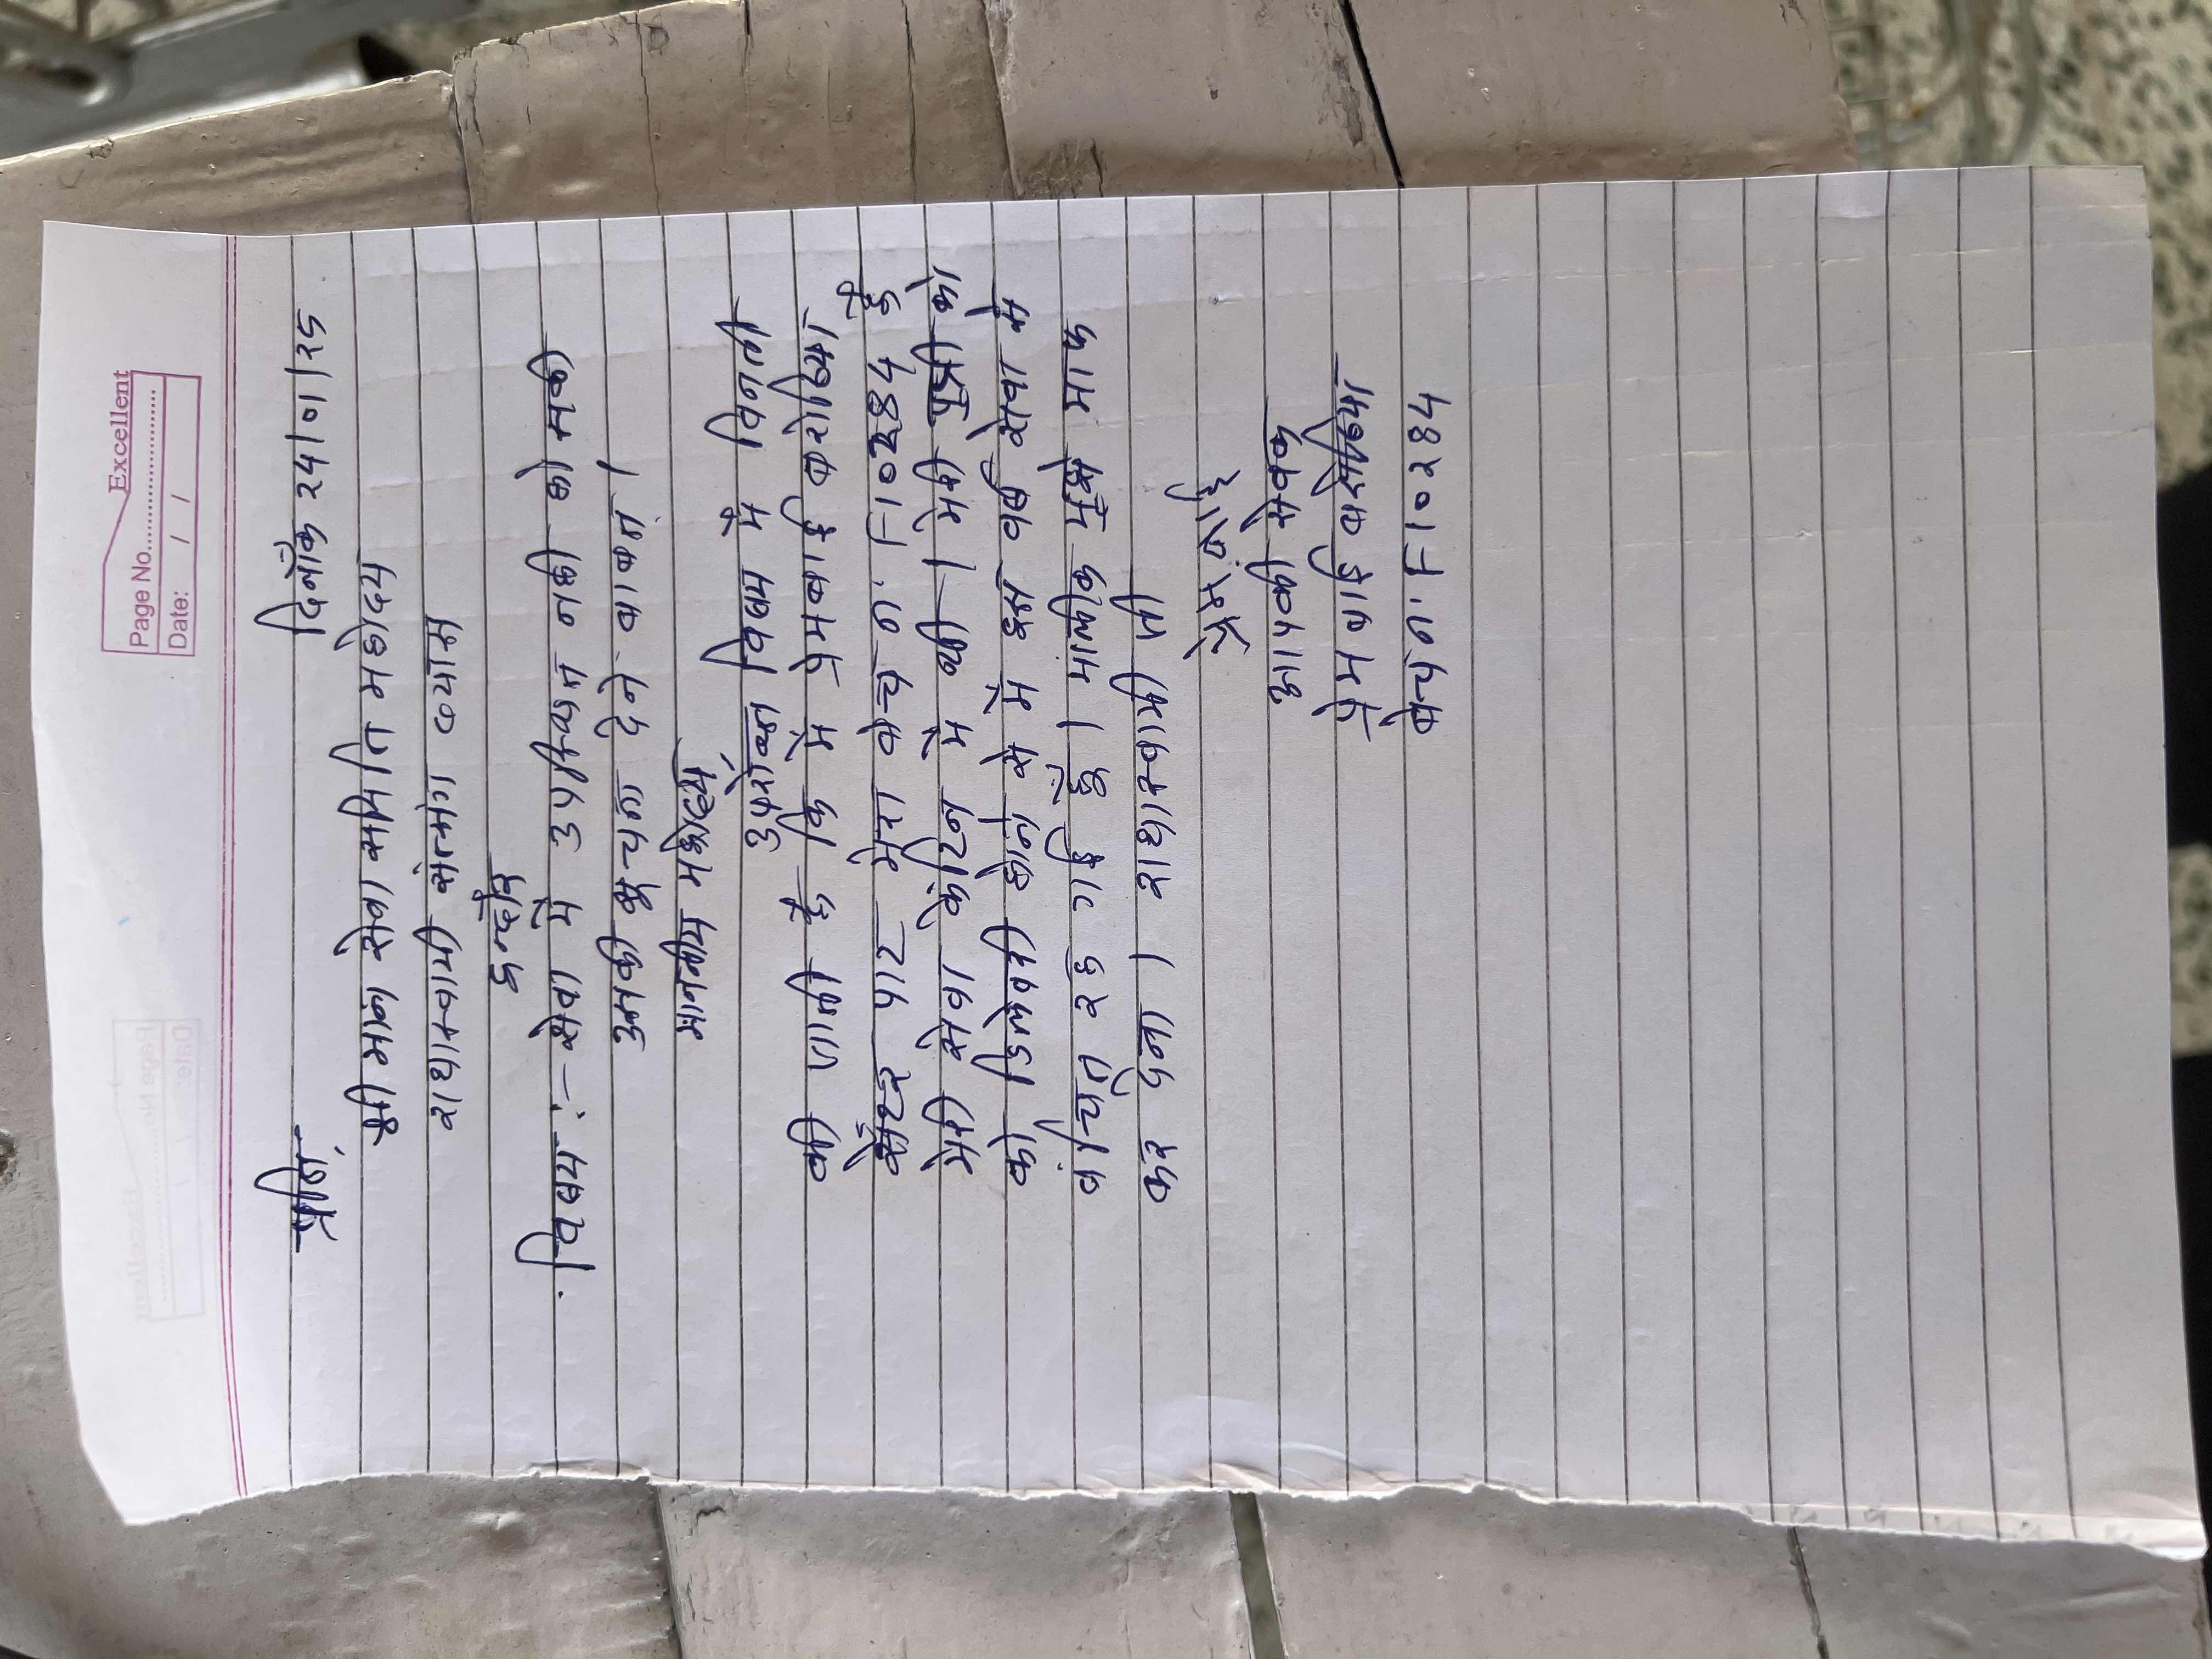 Excellent
Page No.
Date: / /
प्रति, दिनाँक 24/01/25
श्री मान सेवा समिति महोदय
राधास्वामी सत्संग व्यास
इन्दौर
विषय :- सेवा में उपस्थित नही हो सकी
उसकी सूचना देने बाबत।
माननीय महोदय,
उपरोक्त विषय में विनती
की जाती है कि में प्रेमबाई करोठिया
सेंटर पाट मेरा बेच न. F10284 है
मेरी सेवा केंटिन में थी। मेरी पुत्री को
को डिलेवरी होने से में इस वर्ष सेवा से
वंचित रह गई हूँ। मालिक मुझे माफ
कर देना। राधास्वामी जी
प्रेम बाई
आपकी सेवक
प्रेम बाई करोठिया
बेच न. F10284